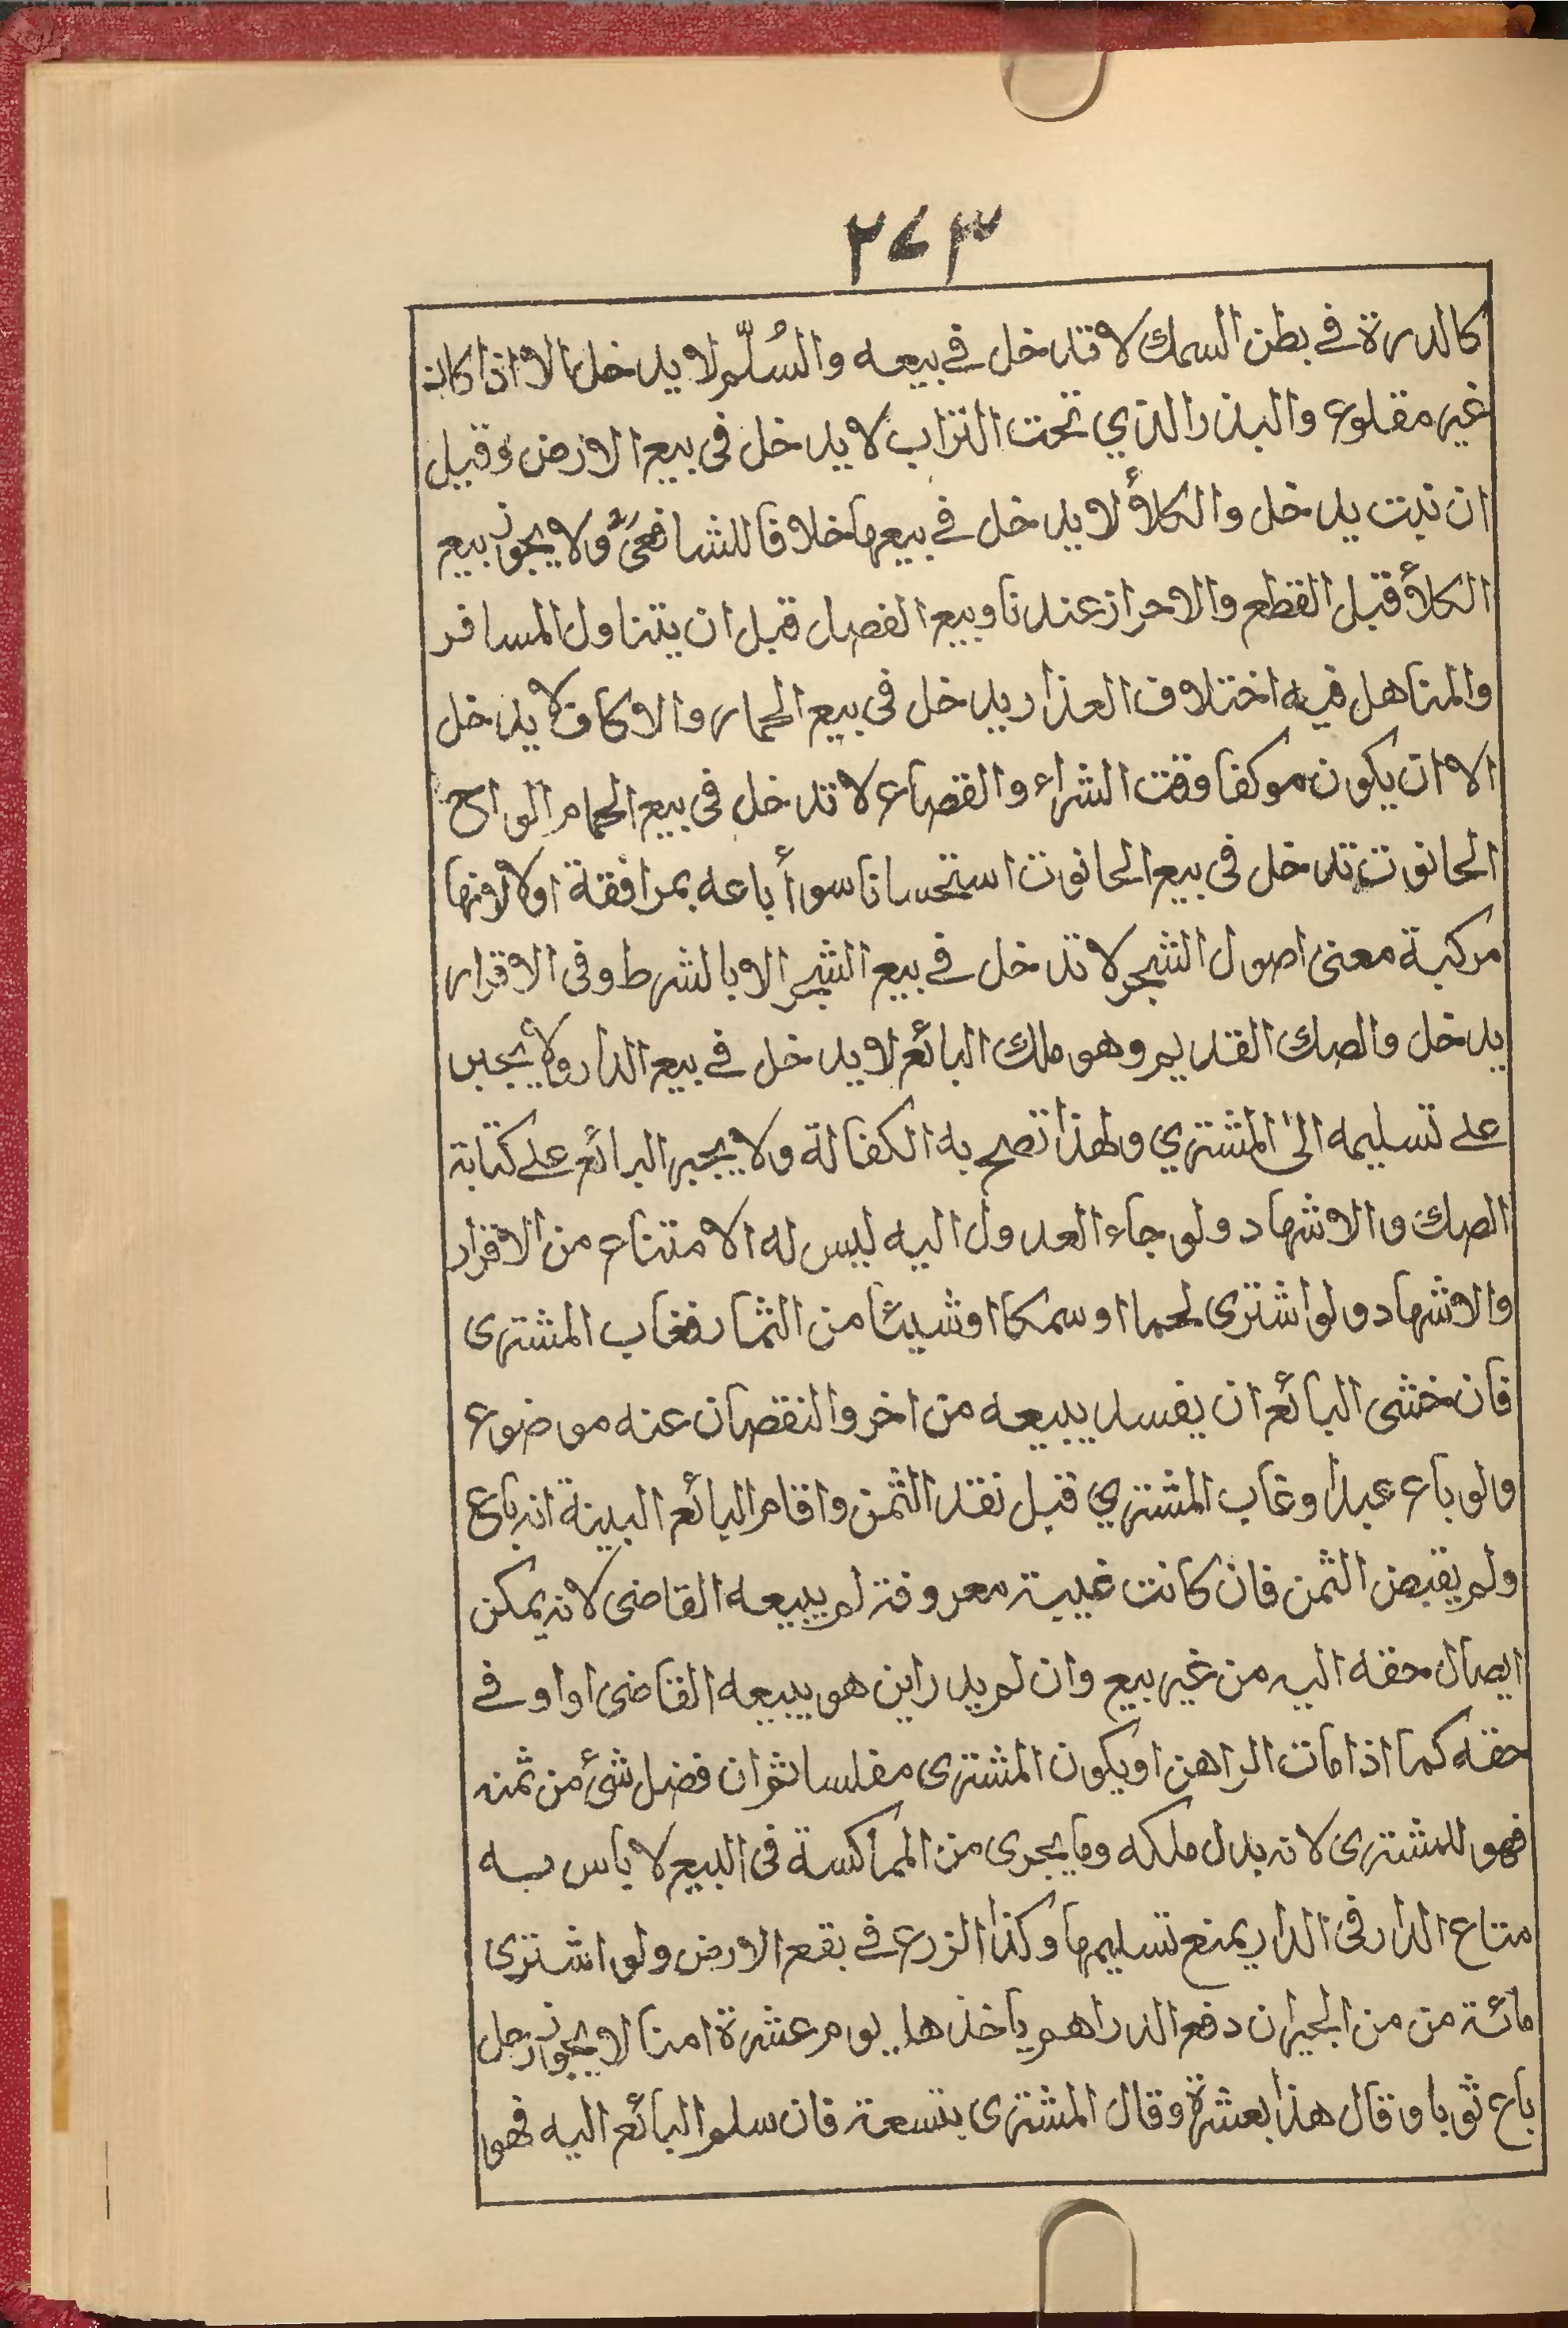 ٢٧٣
كالدرة في بطن السمك لا تدخل في بيعه والسُلّم لا يدخل الا اذا كان
غير مقلوع والبذر الذي تحت التراب لا يدخل فى بيع الارض وقيل
ان نبت يدخل والكلأ لا يدخل في بيعها خلافا للشافعى ولا يجوز بيع
الكلأ قبل القطع والاحراز عندنا وبيع الفصل قبل ان يتناول المسافر
والمناهل فيه اختلاف العذار يدخل فى بيع الحمار والاكاف لا يدخل
الا ان يكون موكفا وقت الشراء والقصاع لا تدخل فى بيع الحمام الواح
الحانوت تدخل فى بيع الحانوت استحسانا سوأ باعه بمرافقة اولا لانها
مركبة معنى اصول الشجر لا تدخل في بيع الشجر الا بالشرط وفى الاقرار
يدخل والصك القديم وهو ملك البائع لا يدخل في بيع الدار ولا يجبر
على تسليمه الى المشتري ولهذا تصح به الكفالة ولا يجبر البائع على كتابة
الصك والاشهاد ولو جاء العدول اليه ليس له الامتناع من الاقرار
والاشهاد ولو اشترى لحما او سمكا او شيئا من الثمار فغاب المشترى
فان خشى البائع ان يفسد يبيعه من اخر والنقصان عنه موضوع
ولو باع عبدا وغاب المشتري قبل نقد الثمن واقام البائع البينة انه باع
ولم يقبض الثمن فان كانت غيبته معروفة لم يبيعه القاضى لانه يمكن
ايصال حقه اليه من غير بيع وان لم يدر اين هو يبيعه القاضى اوا وفى
حقه كما اذا مات الراهن او يكون المشترى مفلسا ثم ان فضل شئ من ثمنه
فهو للمشترى لانه بدل ملكه وما يجرى من المماكسة فى البيع لا باس به
متاع الدار فى الدار يمنع تسليمها وكذا الزرع في بقع الارض ولو اشترى
مائة من من الجيران دفع الدراهم ياخذ ها يوم عشرة امنا لا يجوز رجل
باع ثوبا وقال هذا بعشرة وقال المشترى بتسعة فان سلم البائع اليه فهو